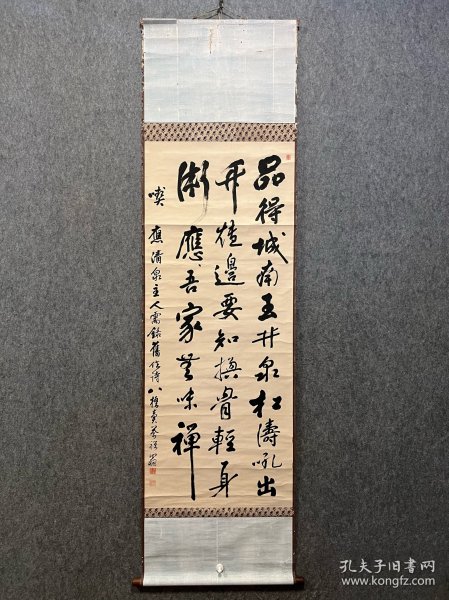 品得城南玉井泉松濤吼出
竹爐邊要知換骨輕身
術應吾家茶味禪
喫 應清泉主人需錄舊作時八
孔夫子旧书网
www.kongfz.com